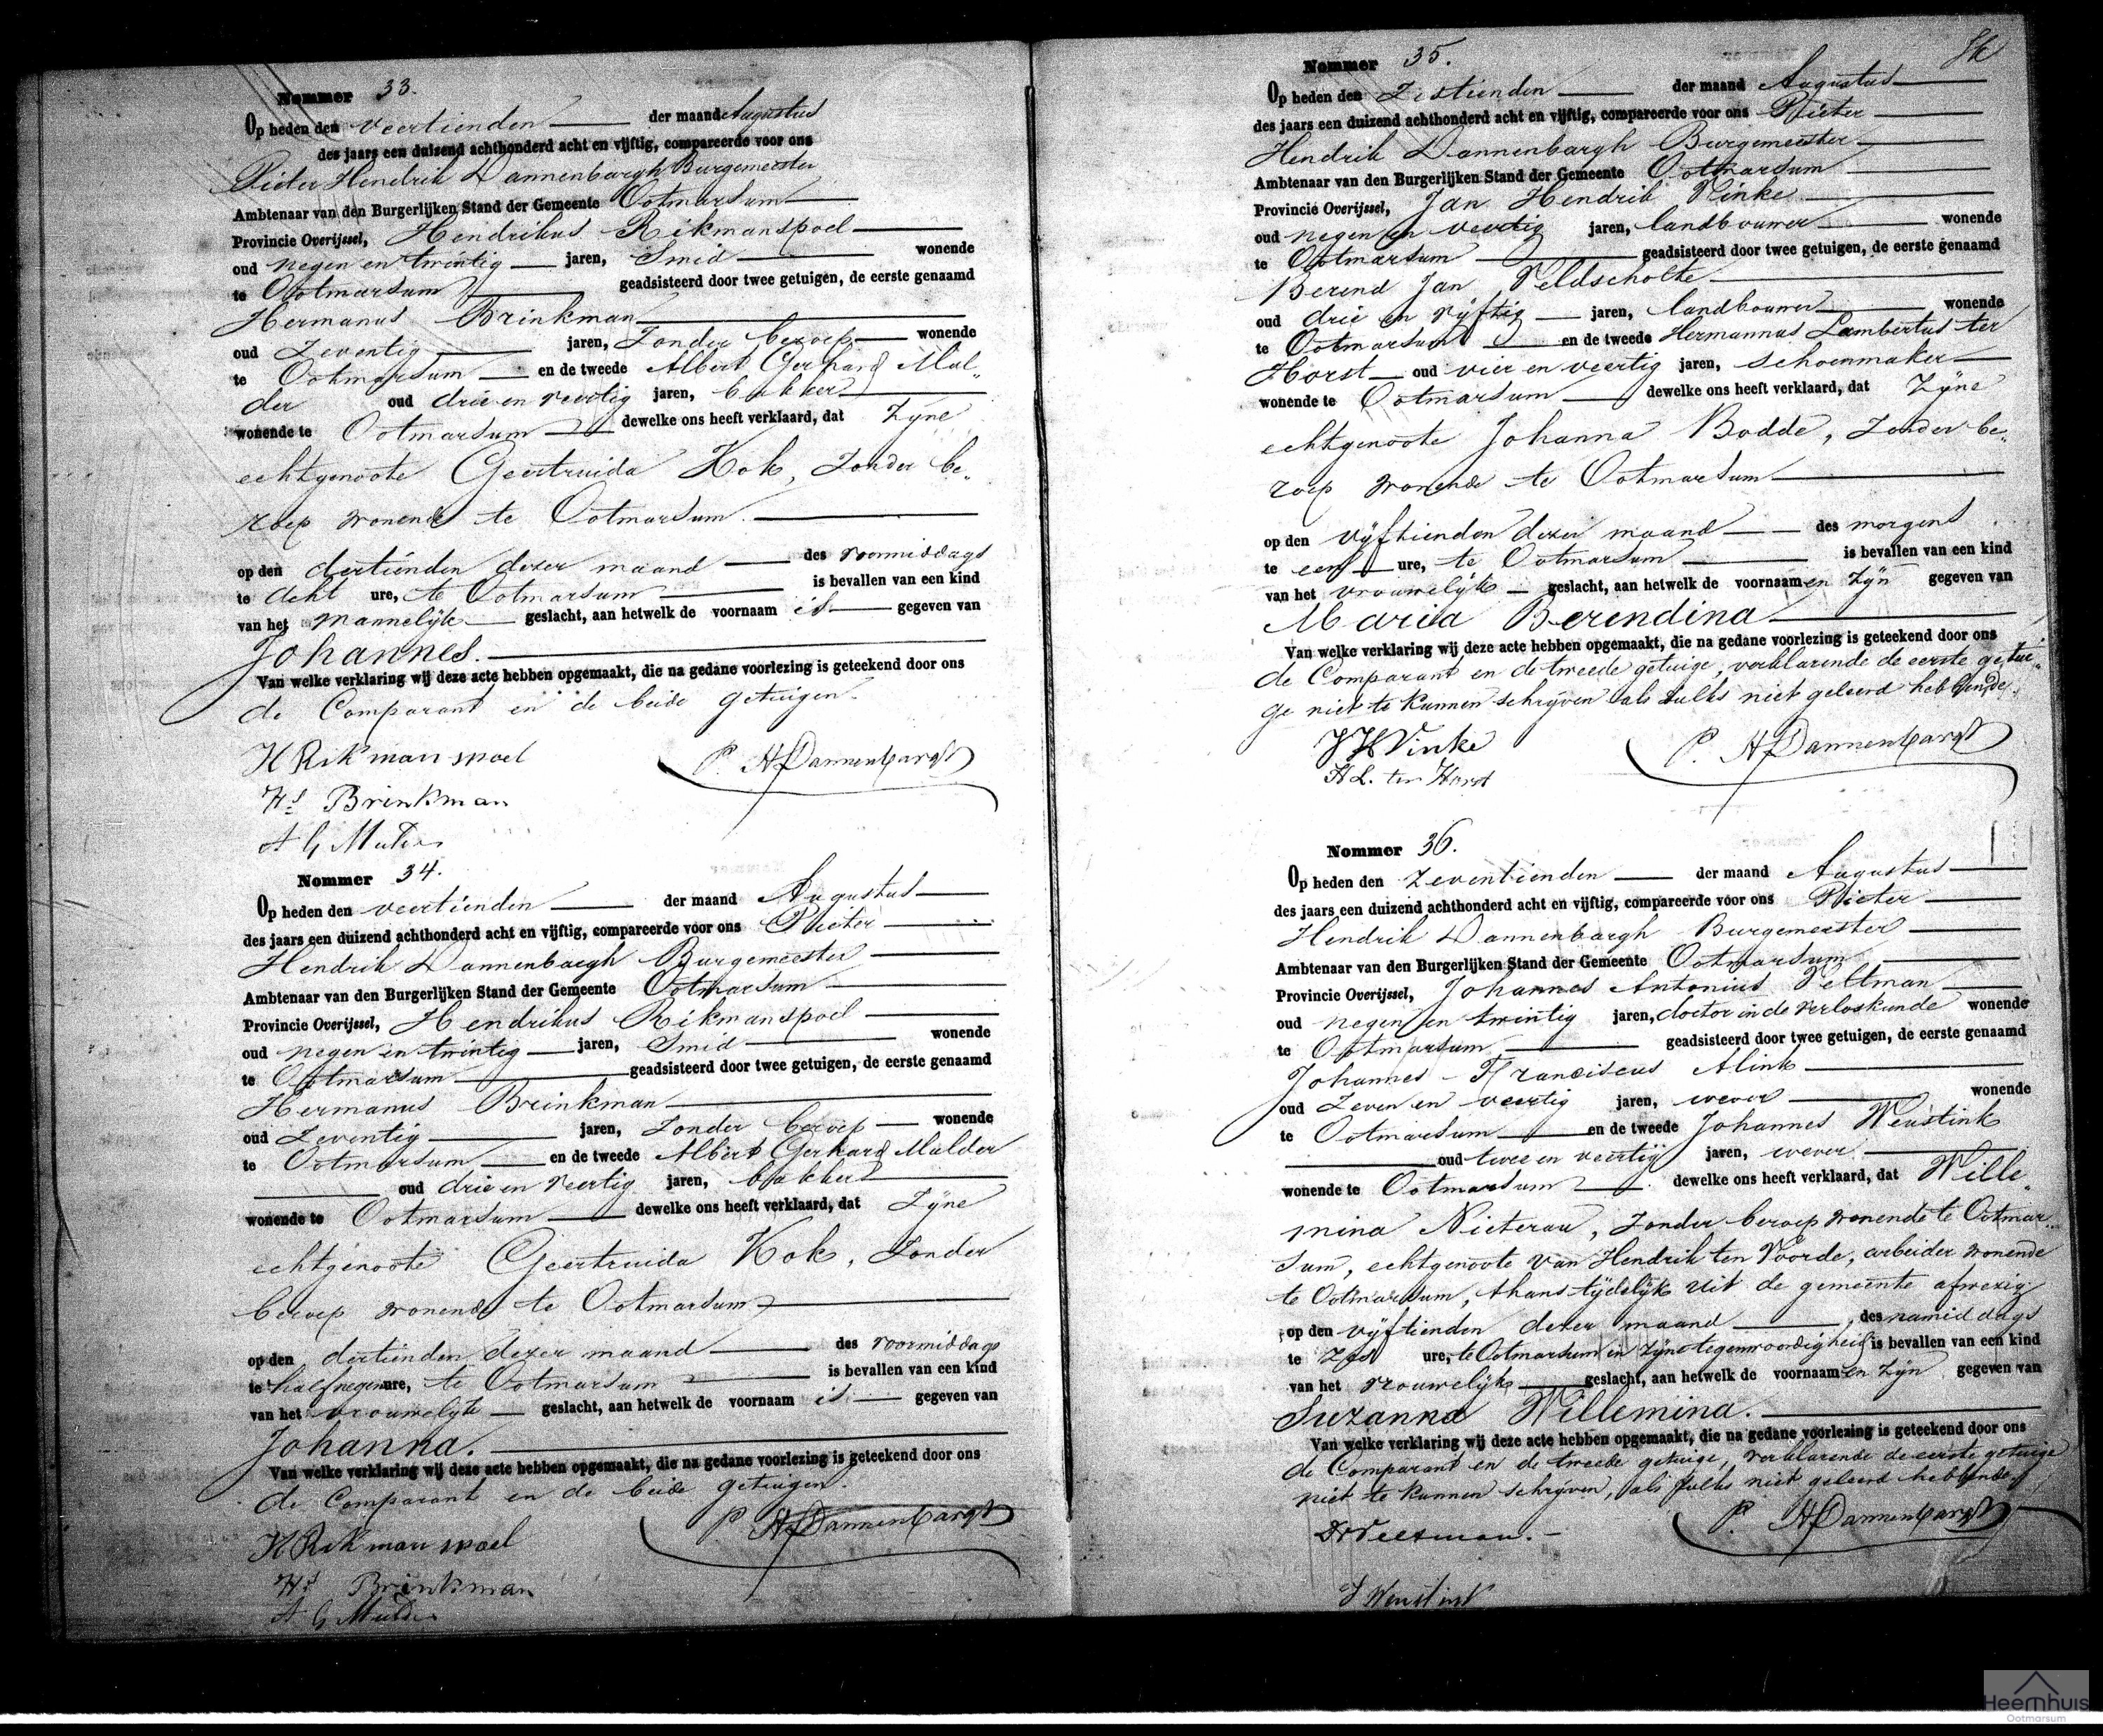 Nommer 33.
Op heden den veertienden der maand Augustus
des jaars een duizend achthonderd acht en vijftig, compareerde voor ons
Pieter Hendrik Dannenbargh Burgemeester
Ambtenaar van den Burgerlijken Stand der Gemeente Ootmarsum
Provincie Overijssel, Hendrikus Rikmanspoel
oud negen en twintig jaren, Smid wonende
te Ootmarsum geadsisteerd door twee getuigen, de eerste genaamd
Hermanus Brinkman
oud Zeventig jaren, Zonder beroep wonende
te Ootmarsum en de tweede Albert Gerhard Mul„
der oud drie en veertig jaren, bakker
wonende te Ootmarsum dewelke ons heeft verklaard, dat Zyne
echtgenoote Geertruida Kok, Zonder be„
roep wonende te Ootmarsum.
op den dertienden dezer maand des voormiddags
te acht ure, te Ootmarsum is bevallen van een kind
van het mannelyk geslacht, aan hetwelk de voornaam is gegeven van
Johannes.
Van welke verklaring wij deze acte hebben opgemaakt, die na gedane voorlezing is geteekend door ons
de Comparant en de beide getuigen.
H Rikmanspoel P. H Dannenbargh
Hs Brinkman
A G Mulder
Nommer 34.
Op heden den veertienden der maand Augustus
des jaars een duizend achthonderd acht en vijftig, compareerde voor ons Pieter
Hendrik Dannenbargh Burgemeester
Ambtenaar van den Burgerlijken Stand der Gemeente Ootmarsum
Provincie Overijssel, Hendrikus Rikmanspoel
oud negen en twintig jaren, Smid wonende
te Ootmarsum geadsisteerd door twee getuigen, de eerste genaamd
Hermanus Brinkman
oud Zeventig jaren, Zonder beroep wonende
te Ootmarsum en de tweede Albert Gerhard Mulder
oud drie en veertig jaren, bakker
wonende te Ootmarsum dewelke ons heeft verklaard, dat Zyne
echtgenoote Geertruida Kok, Zonder
beroep wonende te Ootmarsum
op den dertienden dezer maand des voormiddags
te half negen ure, te Ootmarsum is bevallen van een kind
van het vrouwelyk geslacht, aan hetwelk de voornaam is gegeven van
Johanna.
Van welke verklaring wij deze acte hebben opgemaakt, die na gedane voorlezing is geteekend door ons
de Comparant en de beide getuigen.
H Rikmanspoel P. H Dannenbargh
Hs Brinkman
A G Mulder
Nommer 35.
Op heden den Zestienden der maand Augustus
des jaars een duizend achthonderd acht en vijftig, compareerde voor ons Pieter
Hendrik Dannenbargh Burgemeester
Ambtenaar van den Burgerlijken Stand der Gemeente Ootmarsum
Provincie Overijssel, Jan Hendrik Vinke
oud negen en veertig jaren, landbouwer wonende
te Ootmarsum geadsisteerd door twee getuigen, de eerste genaamd
Berend Jan Veldscholte
oud drie en vyftig jaren, landbouwer wonende
te Ootmarsum en de tweede Hermannus Lambertus ter
Horst oud vier en veertig jaren, schoenmaker
wonende te Ootmarsum dewelke ons heeft verklaard, dat Zyne
echtgenoote Johanna Bodde, Zonder be„
roep wonende te Ootmarsum
op den vyftienden dezer maand des morgens
te een ure, te Ootmarsum is bevallen van een kind
van het vrouwelyk geslacht, aan hetwelk de voornaamen Zyn gegeven van
Maria Berendina
Van welke verklaring wij deze acte hebben opgemaakt, die na gedane voorlezing is geteekend door ons
de Comparant en de tweede getuige, verklarende de eerste getui„
ge niet te kunnen schryven als zulks niet geleerd hebbende.
J H Vinke P. H Dannenbargh
H L. ter Horst
Nommer 36.
Op heden den Zeventienden der maand Augustus
des jaars een duizend achthonderd acht en vijftig, compareerde voor ons Pieter
Hendrik Dannenbargh Burgemeester
Ambtenaar van den Burgerlijken Stand der Gemeente Ootmarsum
Provincie Overijssel, Johannes Antonius Veltman
oud negen en twintig jaren, doctor in de verloskunde wonende
te Ootmarsum geadsisteerd door twee getuigen, de eerste genaamd
Johannes Franciscus Alink
oud Zeven en veertig jaren, wever wonende
te Ootmarsum en de tweede Johannes Weustink
oud twee en veertig jaren, wever
wonende te Ootmarsum dewelke ons heeft verklaard, dat Wille„
mina Nieterau, Zonder beroep wonende te Ootmar„
sum, echtgenoote van Hendrik ten Voorde, arbeider wonende
te Ootmarsum, thans tydelyk uit de gemeente afwezig
op den vyftienden dezer maand des namiddags
te Zes ure, te Ootmarsum in Zyne tegenwoordigheid is bevallen van een kind
van het vrouwelyk geslacht, aan hetwelk de voornaamen Zyn gegeven van
Suzanna Willemina.
Van welke verklaring wij deze acte hebben opgemaakt, die na gedane voorlezing is geteekend door ons
de Comparant en de tweede getuige, verklarende de eerste getuige
niet te kunnen schryven, als zulks niet geleerd hebbende.
Dr Veltman. P. H Dannenbargh
J Weustink
Heemhuis
Ootmarsum